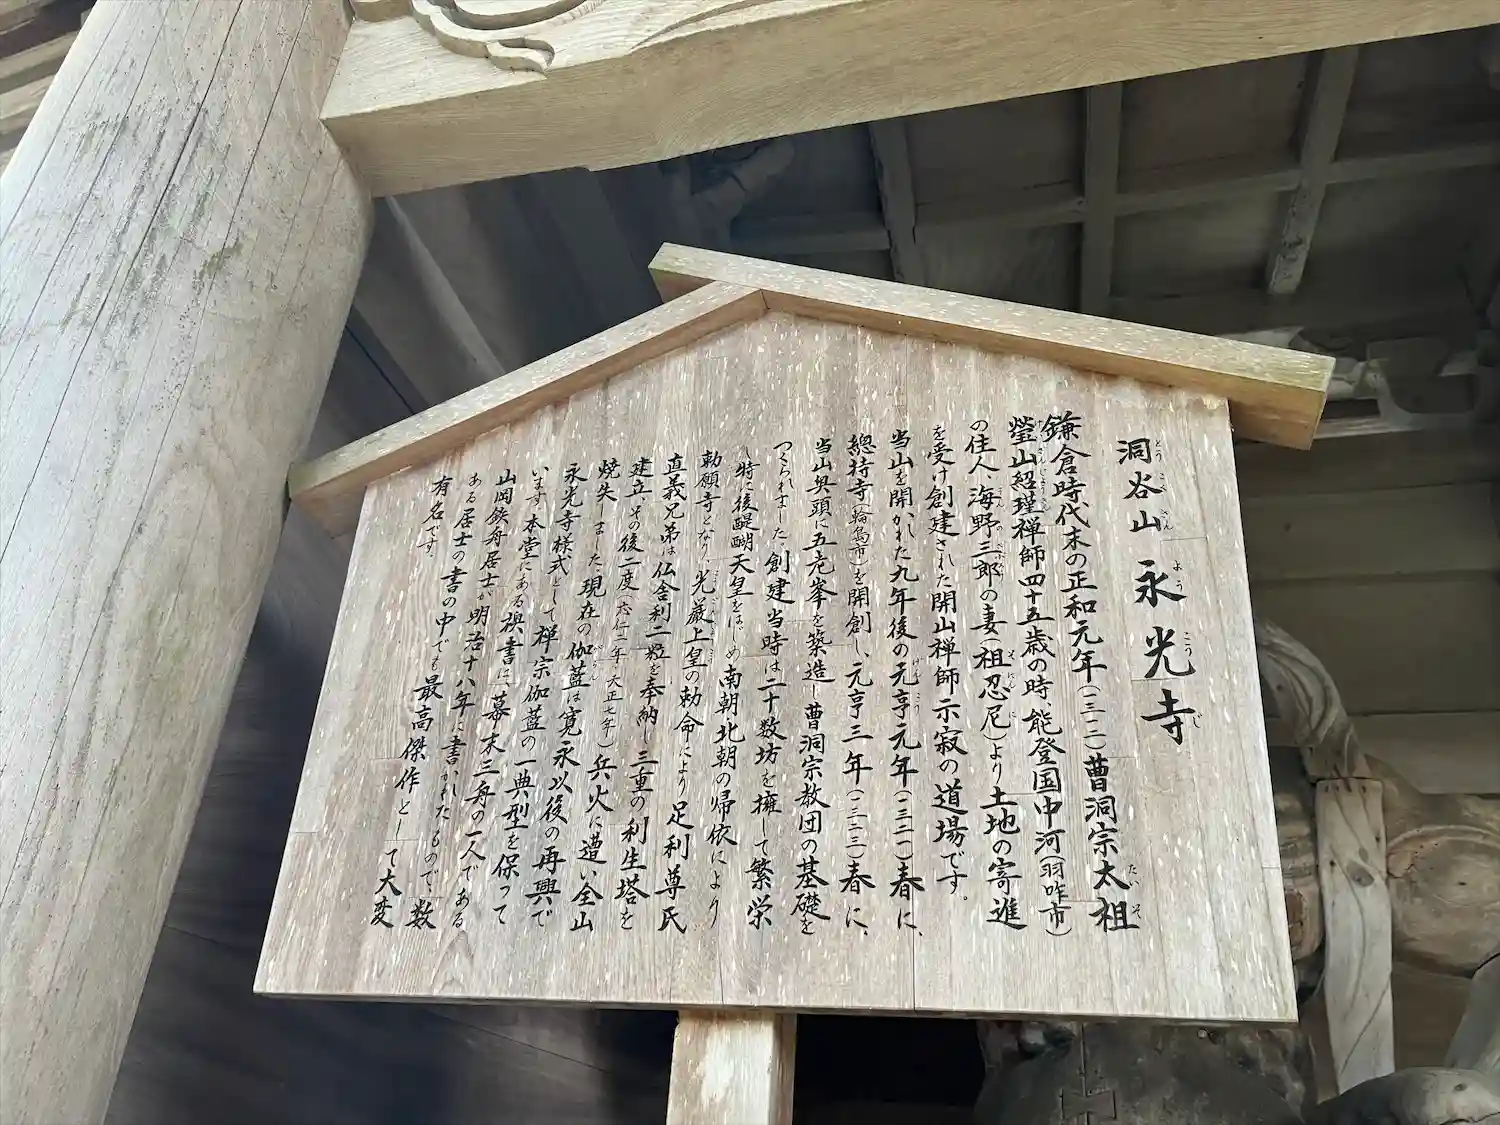 洞谷山 永光寺
鎌倉時代末の正和元年(一三一二)曹洞宗太祖
瑩山紹瑾禅師四十五歳の時、能登国中河(羽咋市)
の住人、海野三郎の妻(祖忍尼)より土地の寄進
を受け創建された開山禅師示寂の道場です。
当山を開かれた九年後の元亨元年(一三二一)春に、
總持寺(輪島市)を開創し、元亨三年(一三二三)春に、
当山奥頭に五老峯を築造し曹洞宗教団の基礎を
つくられました。創建当時は二十数坊を擁して繁栄
し特に後醍醐天皇をはじめ南朝・北朝の帰依により
勅願寺となり、光厳上皇の勅命により足利尊氏
直義兄弟は仏舎利二粒を奉納し三重の利生塔を
建立、その後二度(応仁二年・天正七年)兵火に遭い全山
焼失しました。現在の伽藍は寛永以後の再興で
永光寺様式として禅宗伽藍の一典型を保って
います。本堂にある襖書は、幕末三舟の一人である
山岡鉄舟居士が明治十八年に書かれたもので、数
ある居士の書の中でも最高傑作として大変
有名です。